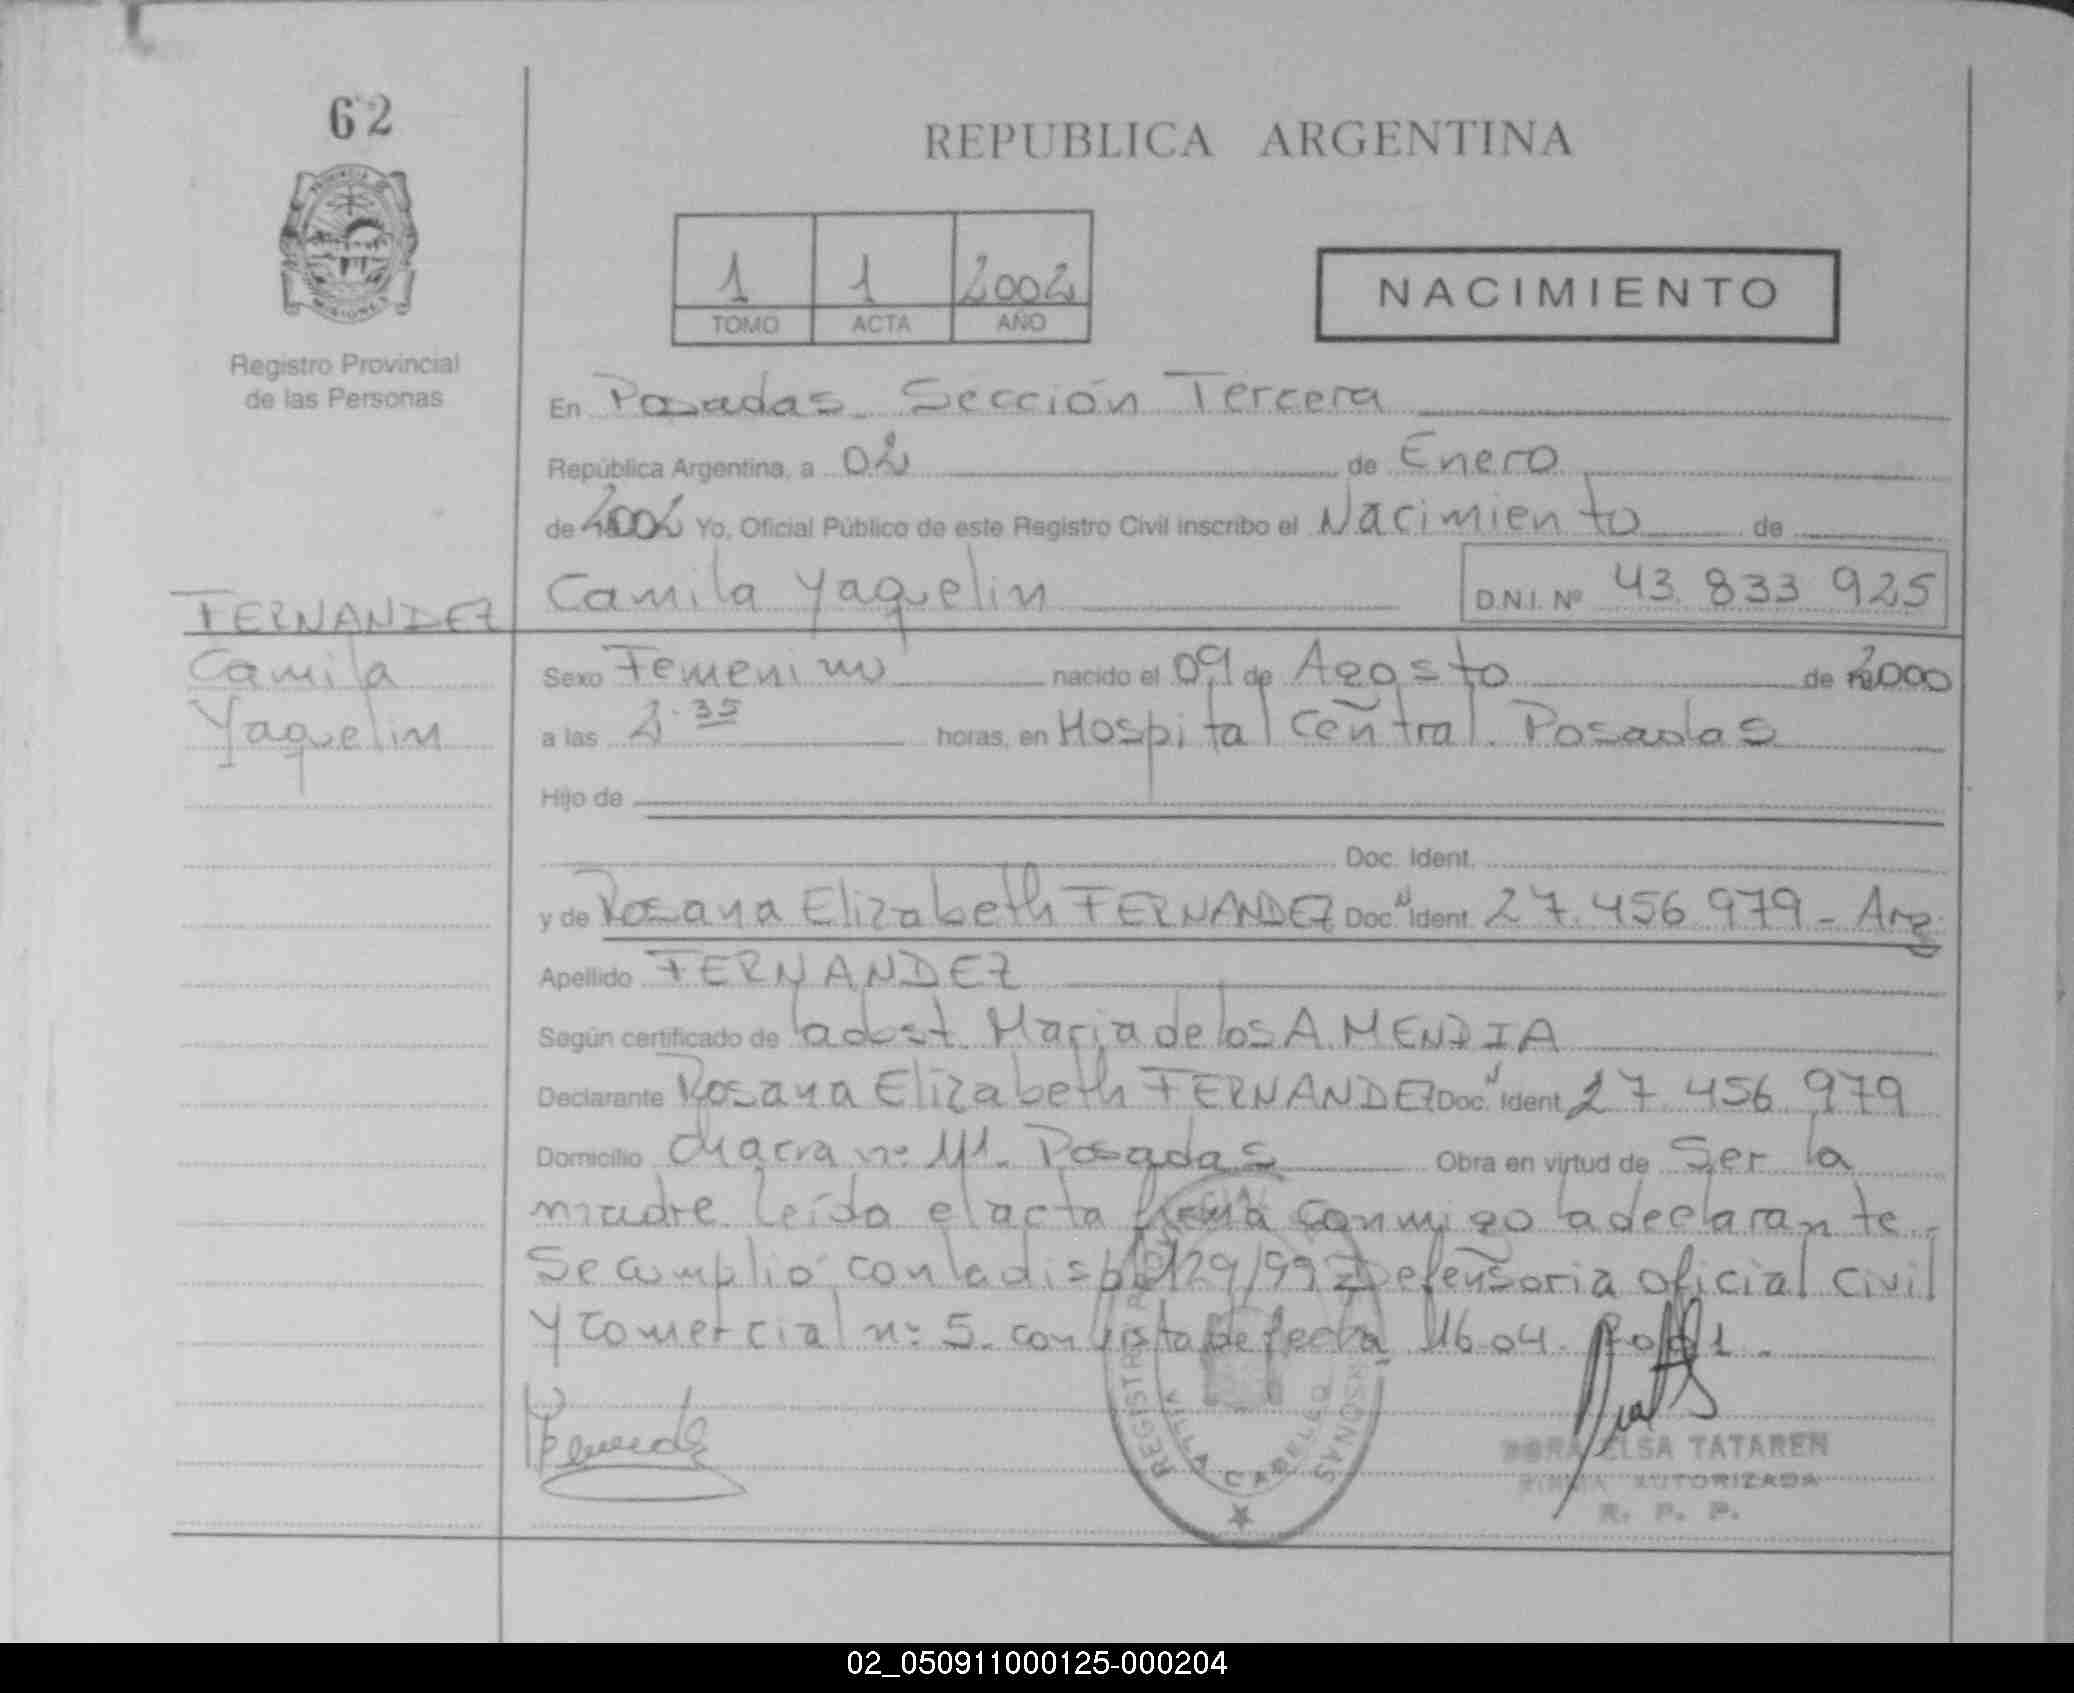 62
REPUBLICA ARGENTINA
1 1 2002
TOMO ACTA AÑO
NACIMIENTO
Registro Provincial
de las Personas
En Posadas. Sección Tercera
República Argentina, a 02 de Enero
de 2002 Yo, Oficial Público de este Registro Civil inscribo el Nacimiento de
Camila Yaquelin D.N.I. Nº 43.833 925
FERNANDEZ
Camila
Yaquelin
Sexo Femenino nacido el 09 de Agosto de 2000
a las 2.35 horas, en Hospital Central. Posadas
Hijo de
Doc. Ident.
y de Rosana Elizabeth FERNANDEZ Doc. Ident. 27.456.979 - Arg.
Apellido FERNANDEZ
Según certificado de la obst. Maria de los A. MENDIA
Declarante Rosana Elizabeth FERNANDEZ Doc. Ident. 27.456.979
Domicilio chacra nº Posadas Obra en virtud de Ser la
madre. Leída el acta firma conmigo la declarante.
Se cumplio con la disp 129/99 Defensoria oficial civil
y comercial nº 5. con vista de fecha 16.04.2001.
REGISTRO PERSONAS
VILLA CABELLO
DORA ELSA TATAREN
FIRMA AUTORIZADA
R. P. P.
02_050911000125-000204